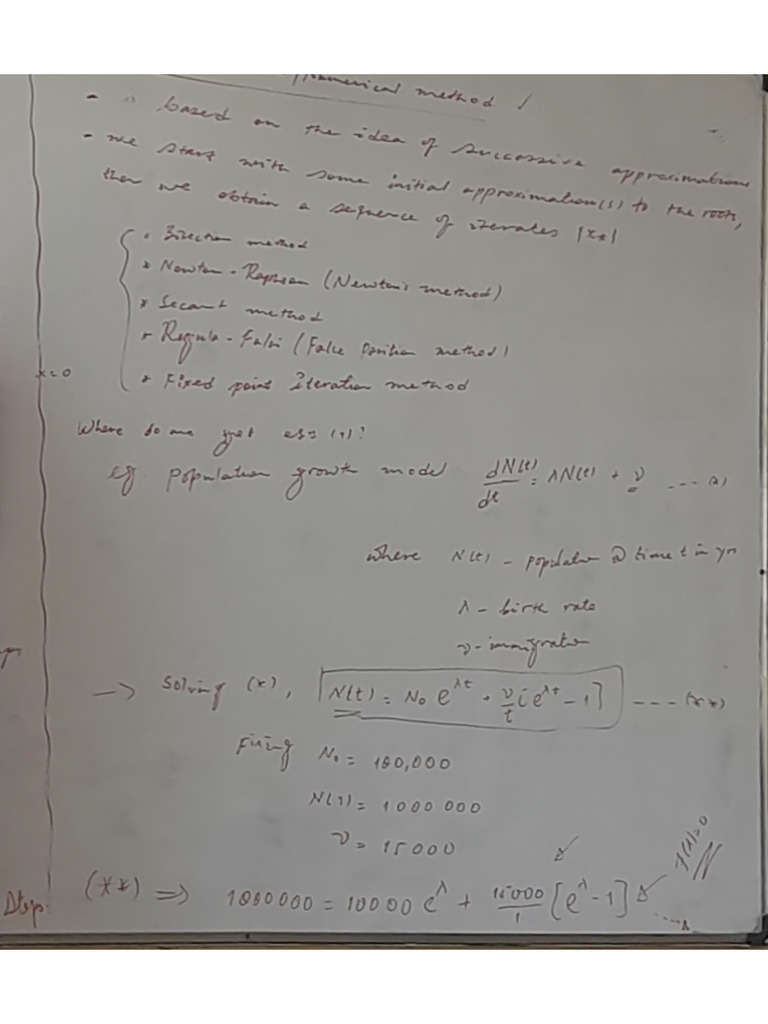 Numerical method
- is based on the idea of successive approximations
- we start with some initial approximation(s) to the root,
then we obtain a sequence of iterates {xₖ}
* Bisection method
* Newton - Raphson (Newton's method)
* Secant method
* Regula - Falsi (False Position method)
* Fixed point iteration method
x=0
Where do we get eqs (1)?
eg population growth model dN(t)/dt = λN(t) + ν ---- (*)
where N(t) - population @ time t in yrs
λ - birth rate
ν - immigration
→ Solving (*), N(t) = N₀ e^{λt} + ν/t [e^{λt} - 1] ---- (**)
Fixing N₀ = 100,000
N(1) = 1000 000
ν = 15000
f(λ)=0
Step:
(**) ⇒ 1000000 = 10000 e^λ + 15000/1 [e^λ - 1]